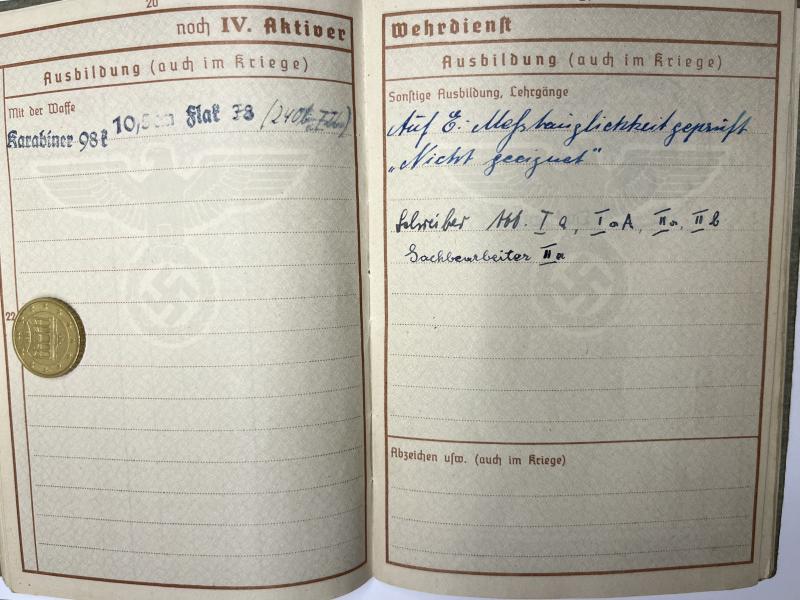 20
noch IV. Aktiver
Ausbildung (auch im Kriege)
Mit der Waffe
Karabiner 98k 10,5 cm Flak 38
22
Wehrdienst
Ausbildung (auch im Kriege)
Sonstige Ausbildung, Lehrgänge
Auf E.-Meßtauglichkeit geprüft
„Nicht geeignet"
Schreiber Abt. Ia, IaA, IIa, IIb
Sachbearbeiter IIa
Abzeichen usw. (auch im Kriege)